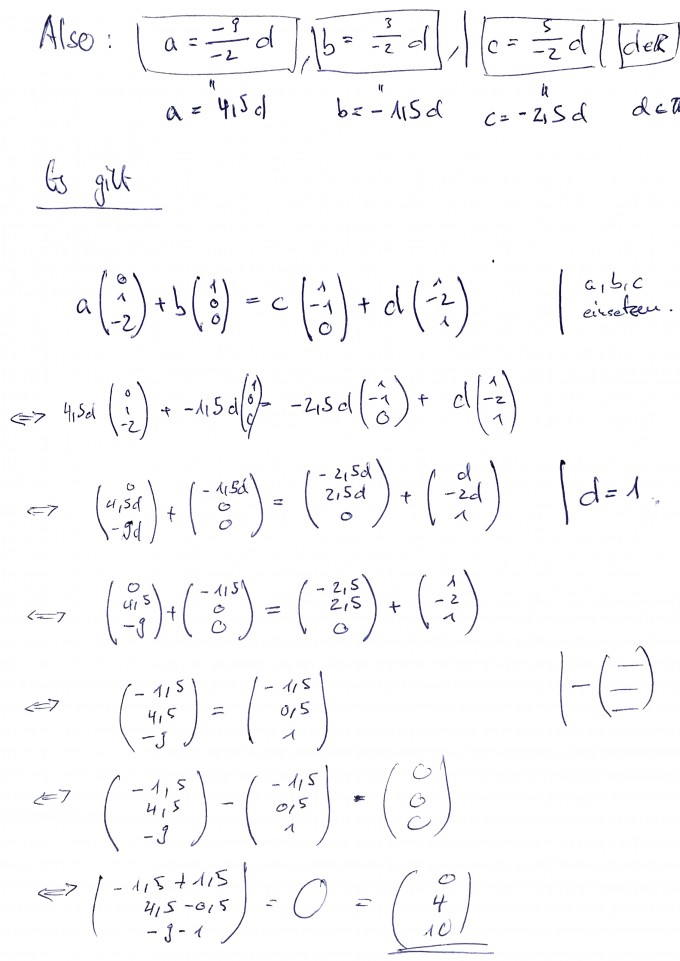 Also: a = -9/-2 d, b = 3/-2 d, c = 5/-2 d d∈ℝ
" " "
a = 4,5d b = -1,5d c = -2,5d
Es gilt
a (0 1 -2) + b (1 0 0) = c (1 -1 0) + d (1 -2 1) | a, b, c einsetzen.
⟺ 4,5d (0 1 -2) + -1,5d (1 0 0) = -2,5d (1 -1 0) + d (1 -2 1)
⟺ (0 4,5d -9d) + (-1,5d 0 0) = (-2,5d 2,5d 0) + (d -2d 1) | d = 1.
⟺ (0 4,5 -9) + (-1,5 0 0) = (-2,5 2,5 0) + (1 -2 1)
⟺ (-1,5 4,5 -9) = (-1,5 0,5 1) | - (— — —)
⟺ (-1,5 4,5 -9) - (-1,5 0,5 1) = (0 0 0)
⟺ (-1,5+1,5 4,5-0,5 -9-1) = 0 = (0 4 10)